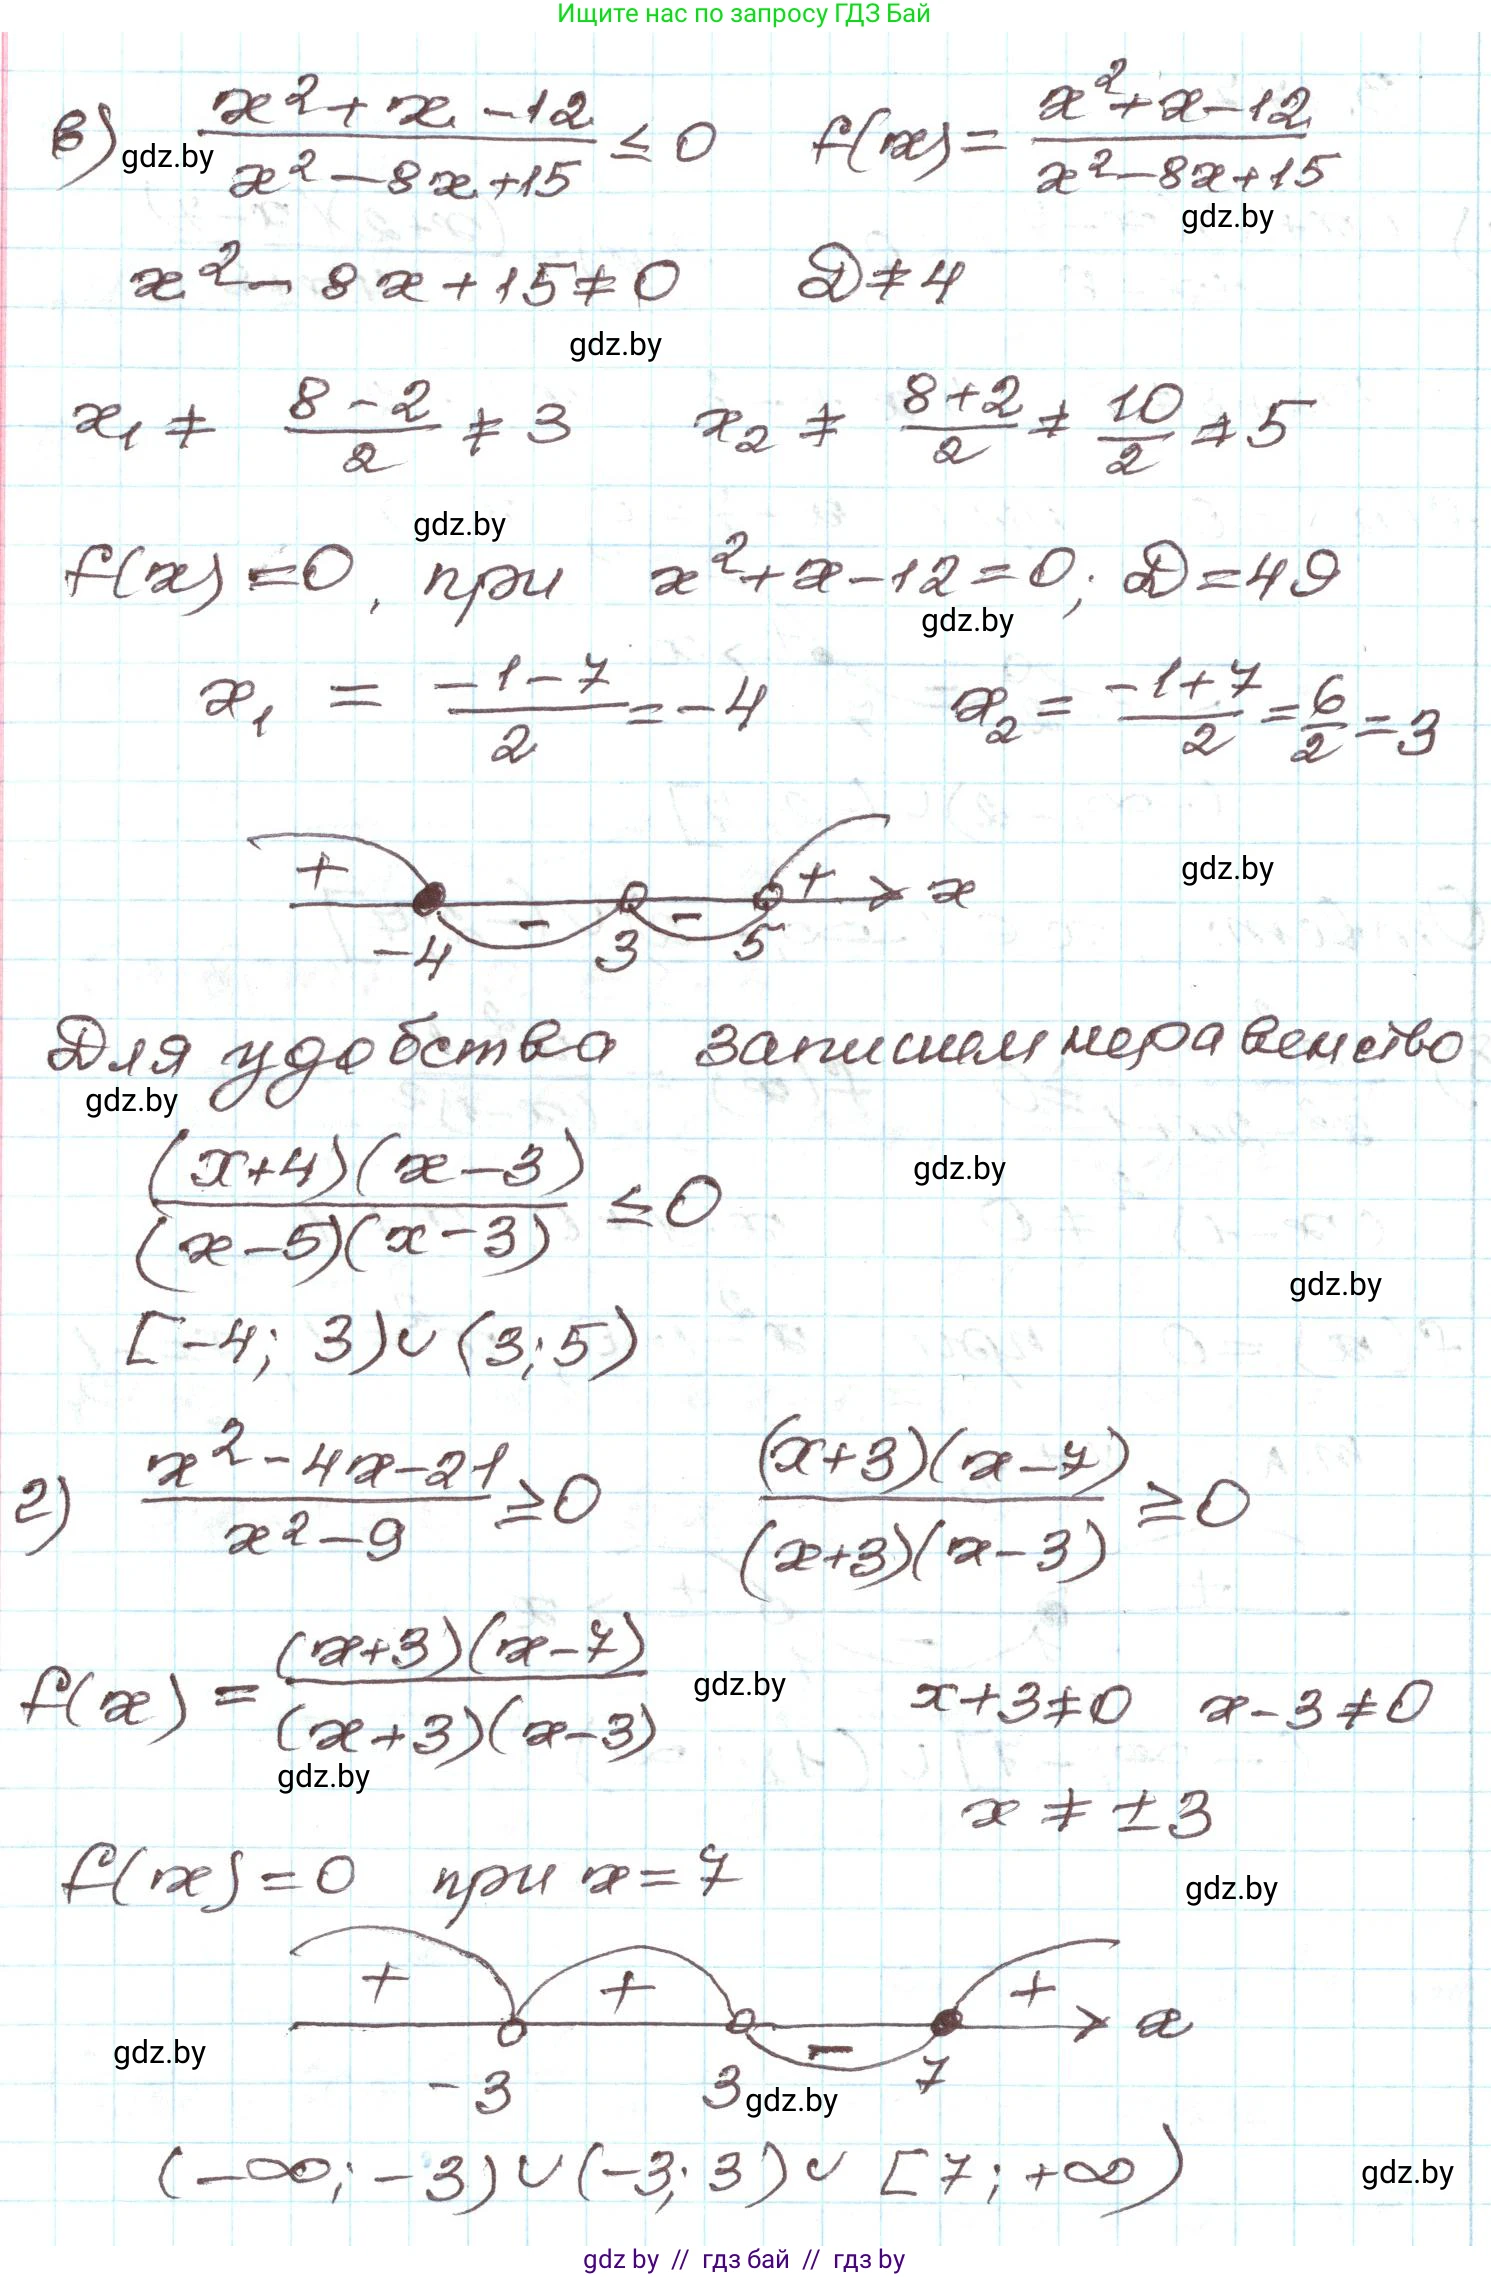 Ищите нас по запросу ГДЗ Бай
в) (x² + x - 12)/(x² - 8x + 15) ≤ 0   f(x) = (x² + x - 12)/(x² - 8x + 15)
gdz.by
gdz.by
x² - 8x + 15 ≠ 0   D ≠ 4
gdz.by
x₁ ≠ (8 - 2)/2 ≠ 3   x₂ ≠ (8 + 2)/2 ≠ 10/2 ≠ 5
gdz.by
f(x) = 0, при x² + x - 12 = 0; D = 49
gdz.by
x₁ = (-1 - 7)/2 = -4   x₂ = (-1 + 7)/2 = 6/2 = 3
+ - - + x
gdz.by
-4 3 5
Для удобства запишем неравенство
gdz.by
((x+4)(x-3))/((x-5)(x-3)) ≤ 0
gdz.by
gdz.by
[-4; 3) ∪ (3; 5)
г) (x² - 4x - 21)/(x² - 9) ≥ 0   ((x+3)(x-7))/((x+3)(x-3)) ≥ 0
f(x) = ((x+3)(x-7))/((x+3)(x-3))   x+3 ≠ 0   x-3 ≠ 0
gdz.by
gdz.by
x ≠ ±3
f(x) = 0 при x = 7
gdz.by
+ + - + x
gdz.by
-3 3 7
gdz.by
(-∞; -3) ∪ (-3; 3) ∪ [7; +∞)
gdz.by
gdz by // гдз бай // гдз by